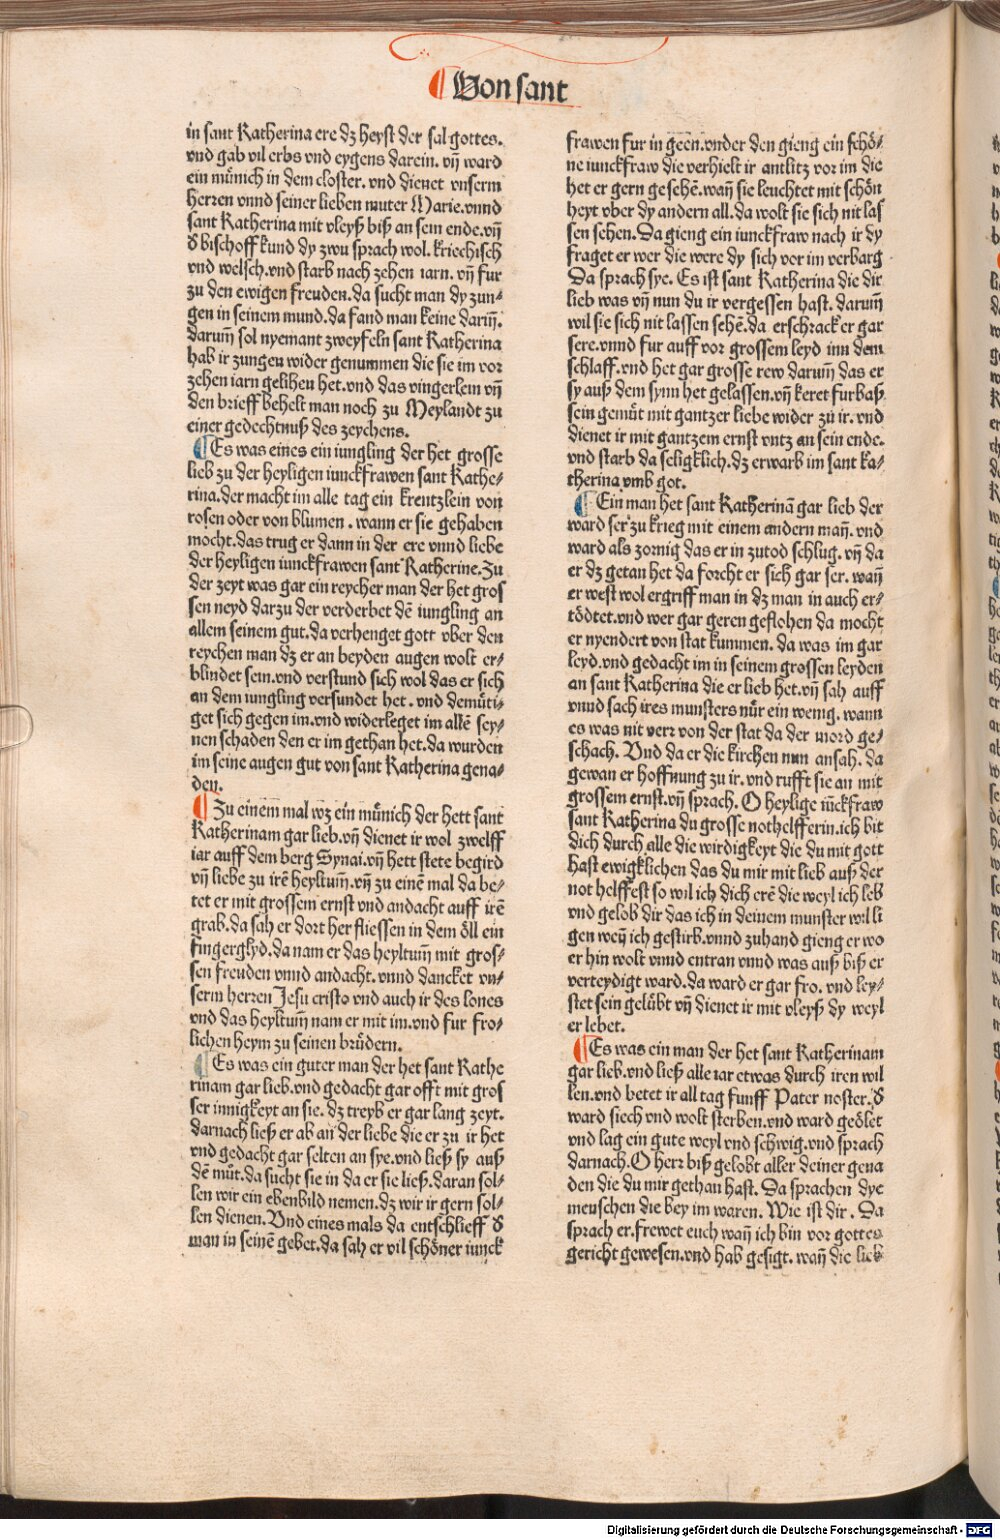 ¶ Von sant
in sant Katherina ere dz heyst der sal gottes.
vnd gab vil erbs vnd eygens darein. vñ ward
ein münich in dem closter. vnd dienet vnserm
herren vnnd seiner lieben muter Marie. vnnd
sant Katherina mit vleyß biß an sein ende. vñ
d bischoff kund dy zwu sprach wol. kriechisch
vnd welsch. vnd starb nach zehen iarn. vñ fur
zu den ewigen freuden. da sucht man dy zun-
gen in seinem mund. da fand man keine dariñ.
darum̃ sol nyemant zweyfeln sant Katherina
hab ir zungen wider genummen die sie im vor
zehen iarn gelihen het. vnd das vingerlein vñ
den brieff behelt man noch zu Meylandt zu
einer gedechtnuß des zeychens.
¶ Es was eines ein iungling der het grosse
lieb zu der heyligen iunckfrawen sant Kathe-
rina. der macht im alle tag ein krentzlein von
rosen oder von blumen. wann er sie gehaben
mocht. das trug er dann in der ere vnnd liebe
der heyligen iunckfrawen sant Katherine. Zu
der zeyt was gar ein reycher man der het gros
sen neyd darzu der verderbet dē iungling an
allem seinem gut. da verhenget gott vber den
reychen man dz er an beyden augen wolt er-
blindet sein. vnd verstund sich wol das er sich
an dem iungling versundet het. vnd demüti-
get sich gegen im. vnd widerleget im allē sey-
nen schaden den er im gethan het. da wurden
im seine augen gut von sant Katherina gena-
den.
¶ Zu einem mal wz ein münich der hett sant
Katherinam gar lieb. vñ dienet ir wol zwelff
iar auff dem berg Synai. vñ hett stete begird
vñ liebe zu irē heyltum̃. vñ zu einē mal da be-
tet er mit grossem ernst vnd andacht auff irē
grab. da sah er dort her fliessen in dem öll ein
fingerglyd. da nam er das heyltum̃ mit gros-
sen freuden vnnd andacht. vnnd dancket vn-
serm herren Jesu cristo vnd auch ir des lones
vnd das heyltum̃ nam er mit im. vnd fur fro-
lichen heym zu seinen brüdern.
¶ Es was ein guter man der het sant Kathe
rinam gar lieb. vnd gedacht gar offt mit gros
ser innigkeyt an sie. dz treyb er gar lang zeyt.
darnach ließ er ab an der liebe die er zu ir het
vnd gedacht gar selten an sye. vnd ließ sy auß
dē müt. da sucht sie in da er sie ließ. daran sol-
len wir ein ebenbild nemen. dz wir ir gern sol-
len dienen. Vnd eines mals da entschlieff d
man in seinē gebet. da sah er vil schöner iunck
frawen fur in geen. vnder den gieng ein schö-
ne iunckfraw die verhielt ir antlitz vor im die
het er gern gesehē. wañ sie leuchtet mit schön
heyt vber dy andern all. da wolt sie sich nit las
sen sehen. Da gieng ein iunckfraw nach ir dy
fraget er wer die were dy sich vor im verbarg
Da sprach sye. Es ist sant Katherina die dir
lieb was vñ nun du ir vergessen hast. darum̃
wil sie sich nit lassen sehē. da erschrack er gar
sere. vnnd fur auff vor grossem leyd inn dem
schlaff. vnd het gar grosse rew darum̃ das er
sy auß dem synn het gelassen. vñ keret furbaß
sein gemüt mit gantzer liebe wider zu ir. vnd
dienet ir mit gantzem ernst vntz an sein ende.
vnd starb da seligklich. dz erwarb im sant ka-
therina vmb got.
¶ Ein man het sant Katherinā gar lieb der
ward ser zu krieg mit einem andern mañ. vnd
ward als zornig das er in zutod schlug. vñ da
er dz getan het da forcht er sich gar ser. wañ
er west wol ergriff man in dz man in auch er-
tödtet. vnd wer gar geren geflohen da mocht
er nyendert von stat kummen. da was im gar
leyd. vnd gedacht im in seinem grossen leyden
an sant Katherina die er lieb het. vñ sah auff
vnnd sach ires munsters nür ein wenig. wann
es was nit verr von der stat da der mord ge-
schach. Vnd da er die kirchen nun ansah. da
gewan er hoffnung zu ir. vnd rufft sie an mit
grossem ernst. vñ sprach. O heylige iūckfraw
sant Katherina du grosse nothelfferin. ich bit
dich durch alle die wirdigkeyt die du mit gott
hast ewigklichen das du mir mit lieb auß der
not helffest so wil ich dich erē die weyl ich leb
vnd gelob dir das ich in deinem munster wil li
gen weñ ich gestirb. vnnd zuhand gieng er wo
er hin wolt vnnd entran vnnd was auß biß er
verteydigt ward. da ward er gar fro. vnd ley-
stet sein gelübt vñ dienet ir mit vleyß dy weyl
er lebet.
¶ Es was ein man der het sant Katherinam
gar lieb. vnd ließ alle iar etwas durch iren wil
len. vnd betet ir all tag funff Pater noster. d
ward siech vnd wolt sterben. vnd ward geölet
vnd lag ein gute weyl vnd schwig. vnd sprach
darnach. O herr biß gelobt aller deiner gena
den die du mir gethan hast. Da sprachen dye
menschen die bey im waren. Wie ist dir. Da
sprach er. frewet euch wañ ich bin vor gottes
gericht gewesen. vnd hab gesigt. wañ die lieb
Digitalisierung gefördert durch die Deutsche Forschungsgemeinschaft - DFG